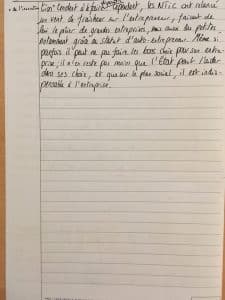 tion" tendent à s'effacer. Cependant, les NTIC ont relancé
un vent de fraîcheur sur l'entrepreneur, faisant de
lui le pilier de grandes entreprises, mais aussi des petites
notamment grâce au statut d'auto-entrepreneur. Même si
parfois il peut ne pas faire les bons choix pour son entre-
prise, il n'en reste pas moins que l'État peut l'aider
dans ses choix, et que sur le plan social, il est indis-
pensable à l'entreprise.